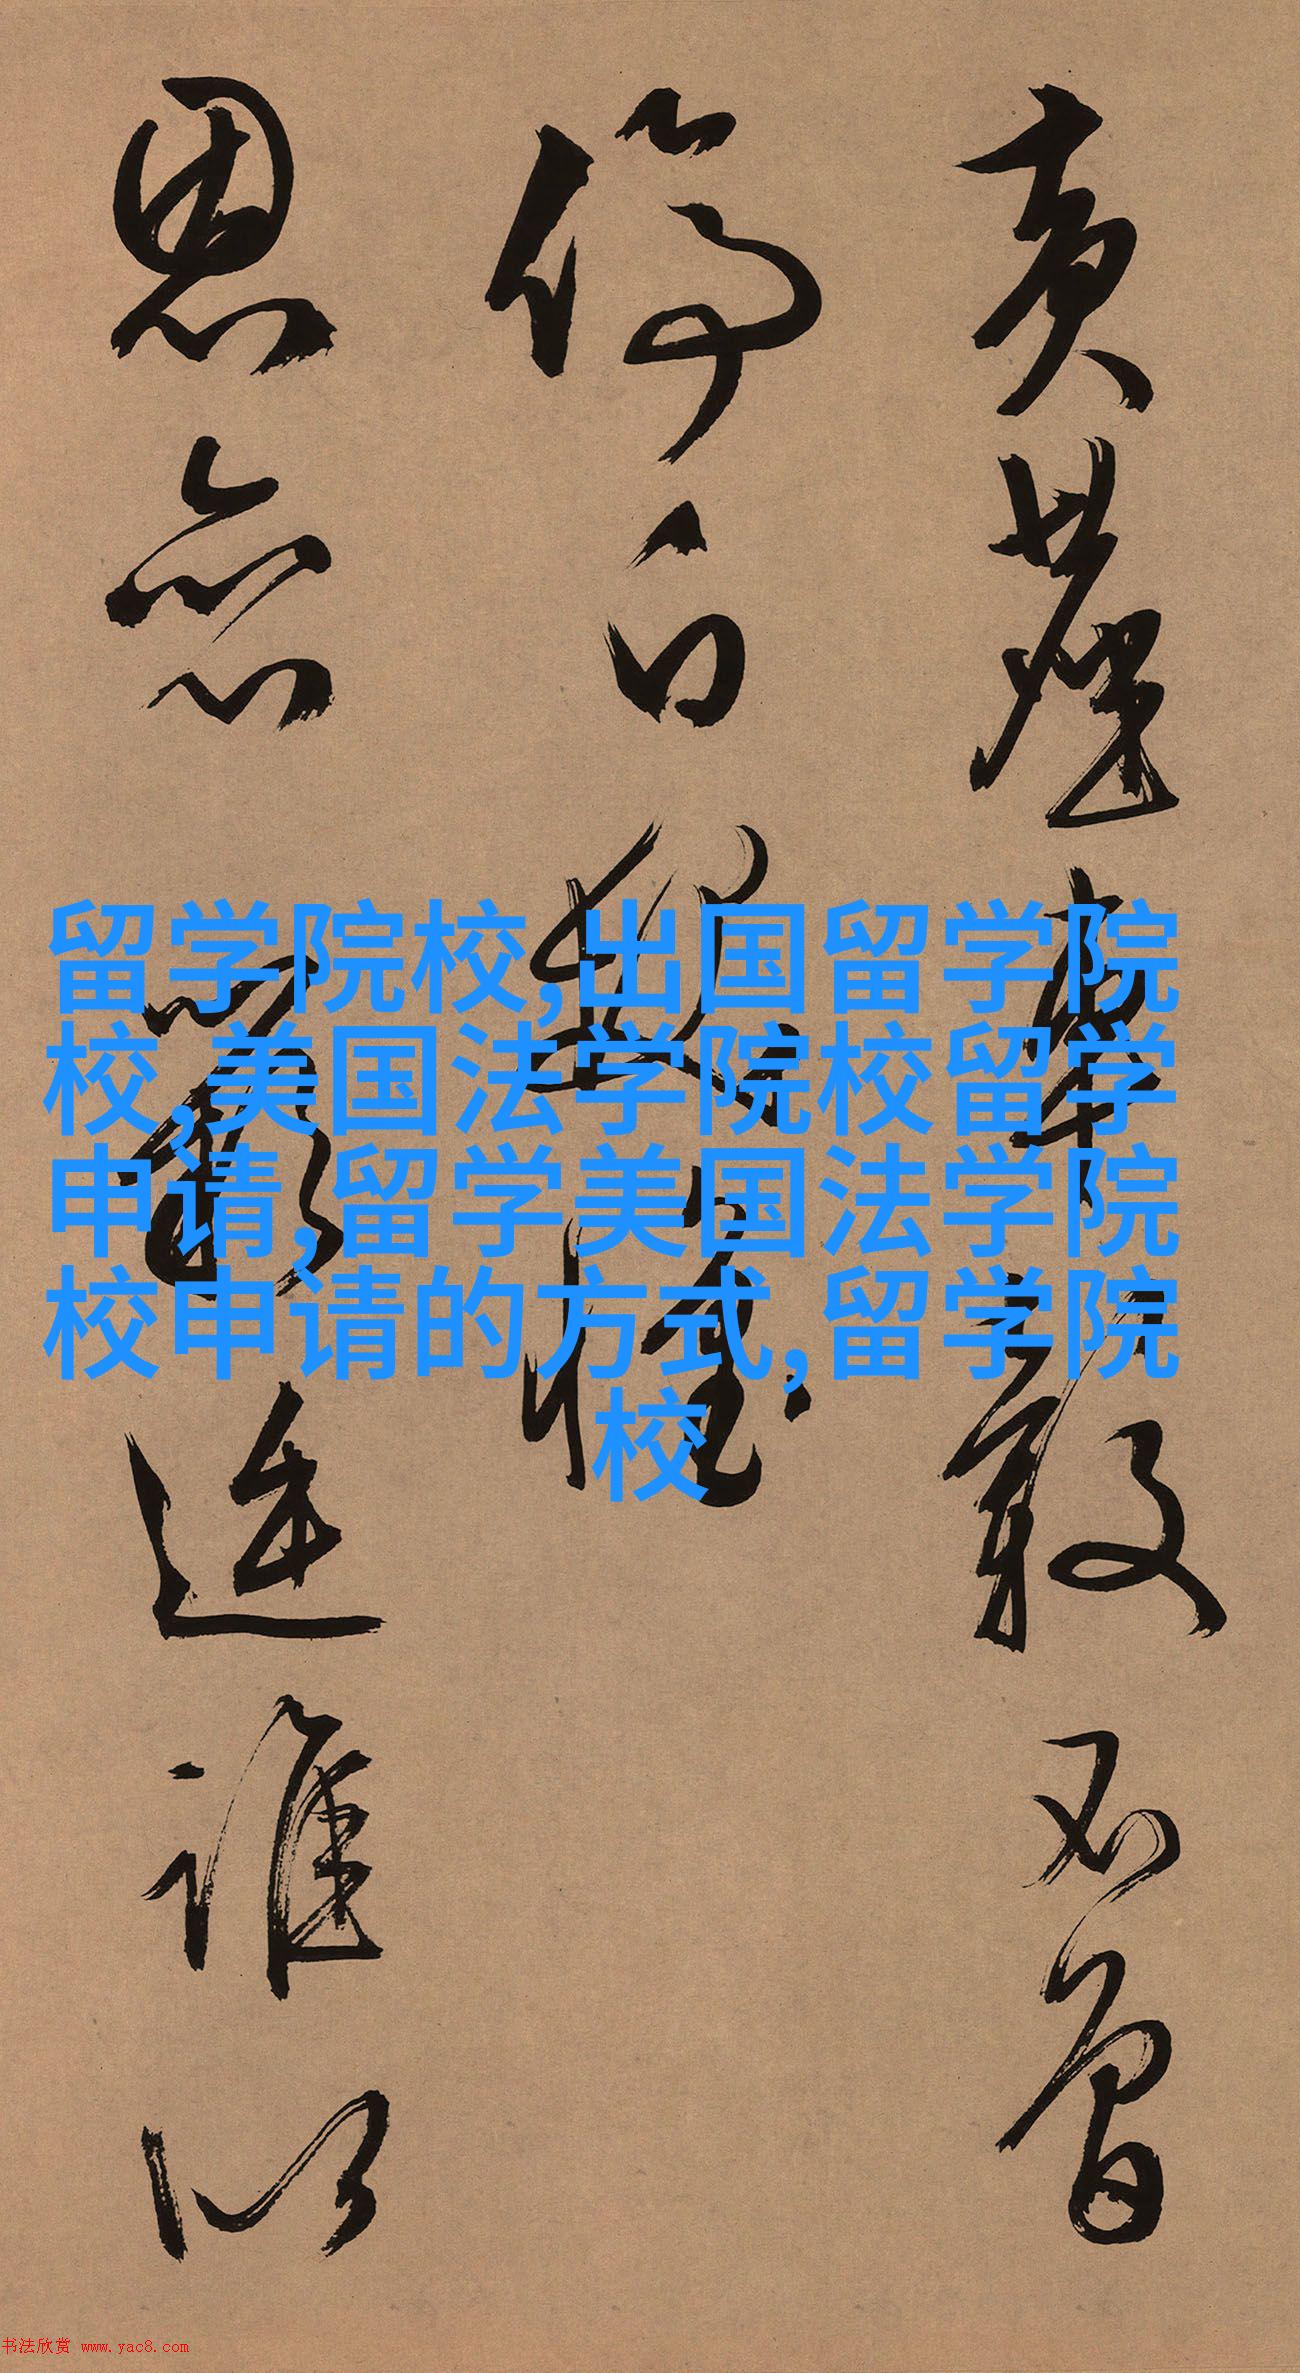 黄塵車轂不曾
停白髮
恩誰以
留学院校,出国留学院
校,美国法学院校留学
申请,留学美国法学院
校申请的方式,留学院
校
书法欣赏 www.yac8.com